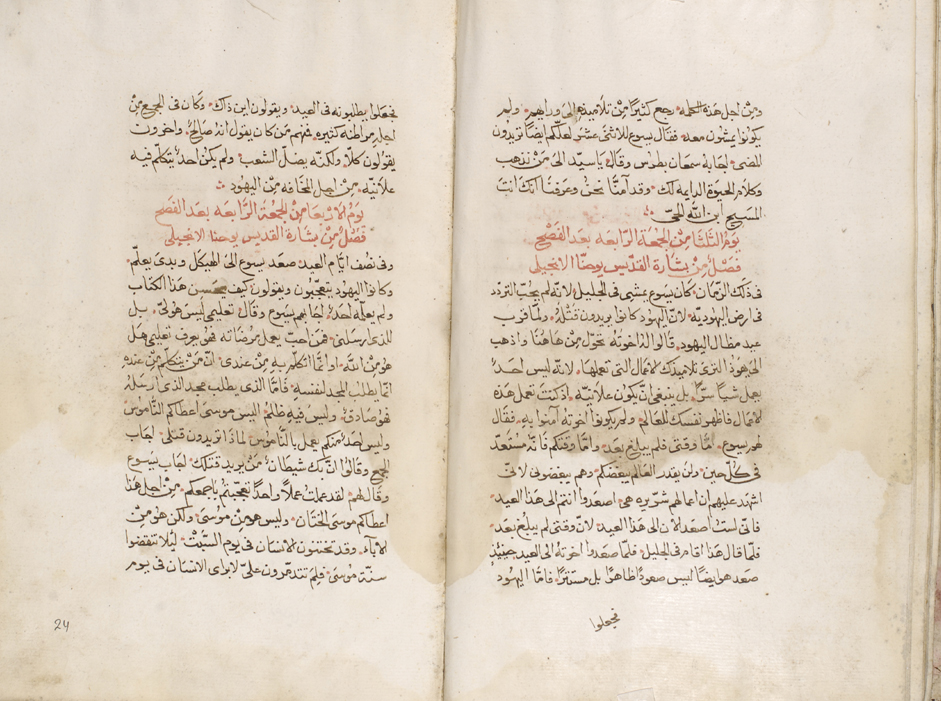 ومن اجل هذه الكلمه رجع كثيرًا من تلاميذه الى ورايهم ولم
يكونوا يمشون معه فقال يسوع للاثنى عشر لعلكم ايضًا تريدون
المضى اجابه سمعان بطرس وقال يا سيد الى من نذهب
وكلام الحيوة الدايمه لك وقد آمنّا نحن وعرفنا انك انت
المسيح ابن الله الحىّ
يوم الثلثا من الجمعة الرابعه بعد الفصح
فصل من بشارة القديس يوحنّا الانجيلى
فى ذلك الزمان كان يسوع يمشى فى الجليل لانه لم يحبّ التردد
فى ارض اليهوديّه لانّ اليهود كانوا يريدون قتله ولما قرب
عيد مظال اليهود قالوا له اخوته تحوّل من هاهنا واذهب
الى يهوذا لترى تلاميذك الاعمال التى تعملها لانه ليس احدٌ
يعمل شياً سرّاً بل ينبغى ان يكون علانيّه اذ كنت تعمل هذه
الاعمال فاظهر نفسك للعالم ولم يكونوا اخوته آمنوا به فقال
لهم يسوع امّا وقتى فلم يبلغ بعد وامّا وقتكم فانّه مستعدّ
فى كلّ حين ولن يقدر العالم يبغضكم وهم يبغضونى لانّى
اشهد عليهم ان اعمالهم شرّيره هى اصعدوا انتم الى هذا العيد
فانى لست اصعد الان الى هذا العيد لانّ وقتى لم يبلغ بعد
فلمّا قال هذا اقام فى الجليل فلمّا صعدوا اخوته الى العيد حينيذٍ
صعد هو ايضًا ليس صعودًا ظاهرًا بل مستترًا فامّا اليهود
فجعلوا
فجعلوا يطلبونه فى العيد ويقولون اين ذاك وكان فى الجمع من
اجله مراطنة كثيره فمنهم من كان يقول انه صالحٌ واخرون
يقولون كلّا ولكنّه يضلّ الشعب ولم يكن احدٌ يتكلّم فيه
علانيّه من اجل المخافه من اليهود
يوم الاربعا من الجمعة الرابعه بعد الفصح
فصل من بشارة القديس يوحنا الانجيلى
وفى نصف ايّام العيد صعد يسوع الى الهيكل وبدى يعلّم
وكانوا اليهود يتعجّبون ويقولون كيف يحسن هذا الكتاب
ولم يعلّمه احدٌ اجابهم يسوع وقال تعليمى ليس هو لىّ بل
للذى ارسلنى فمن احبّ يعمل مرضاته فهو يعرف تعليمى هل
هو من الله او انّما اتكلّم به من عندى انّ من يتكلّم من عنده
انّما يطلب المجد لنفسه فامّا الذى يطلب مجد الذى ارسله
فهو صادقٌ وليس فيه ظلم اليس موسى اعطاكم الناموس
وليس احدٌ منكم يعمل بالنّاموس لماذا تريدون قتلى اجاب
الجمع وقالوا انّ بك شيطان من يريد قتلك اجاب يسوع
وقال لهم لقد عملت عملًا واحدًا فعجبتم باجمعكم من اجل هذا
اعطاكم موسى الختان وليس هو من موسى ولكن هو من
الآباء وقد تختنون الانسان فى يوم السبت ليلا تنقضوا
سنّة موسى فلم تتذمّرون علىّ لابراى الانسان فى يوم
24